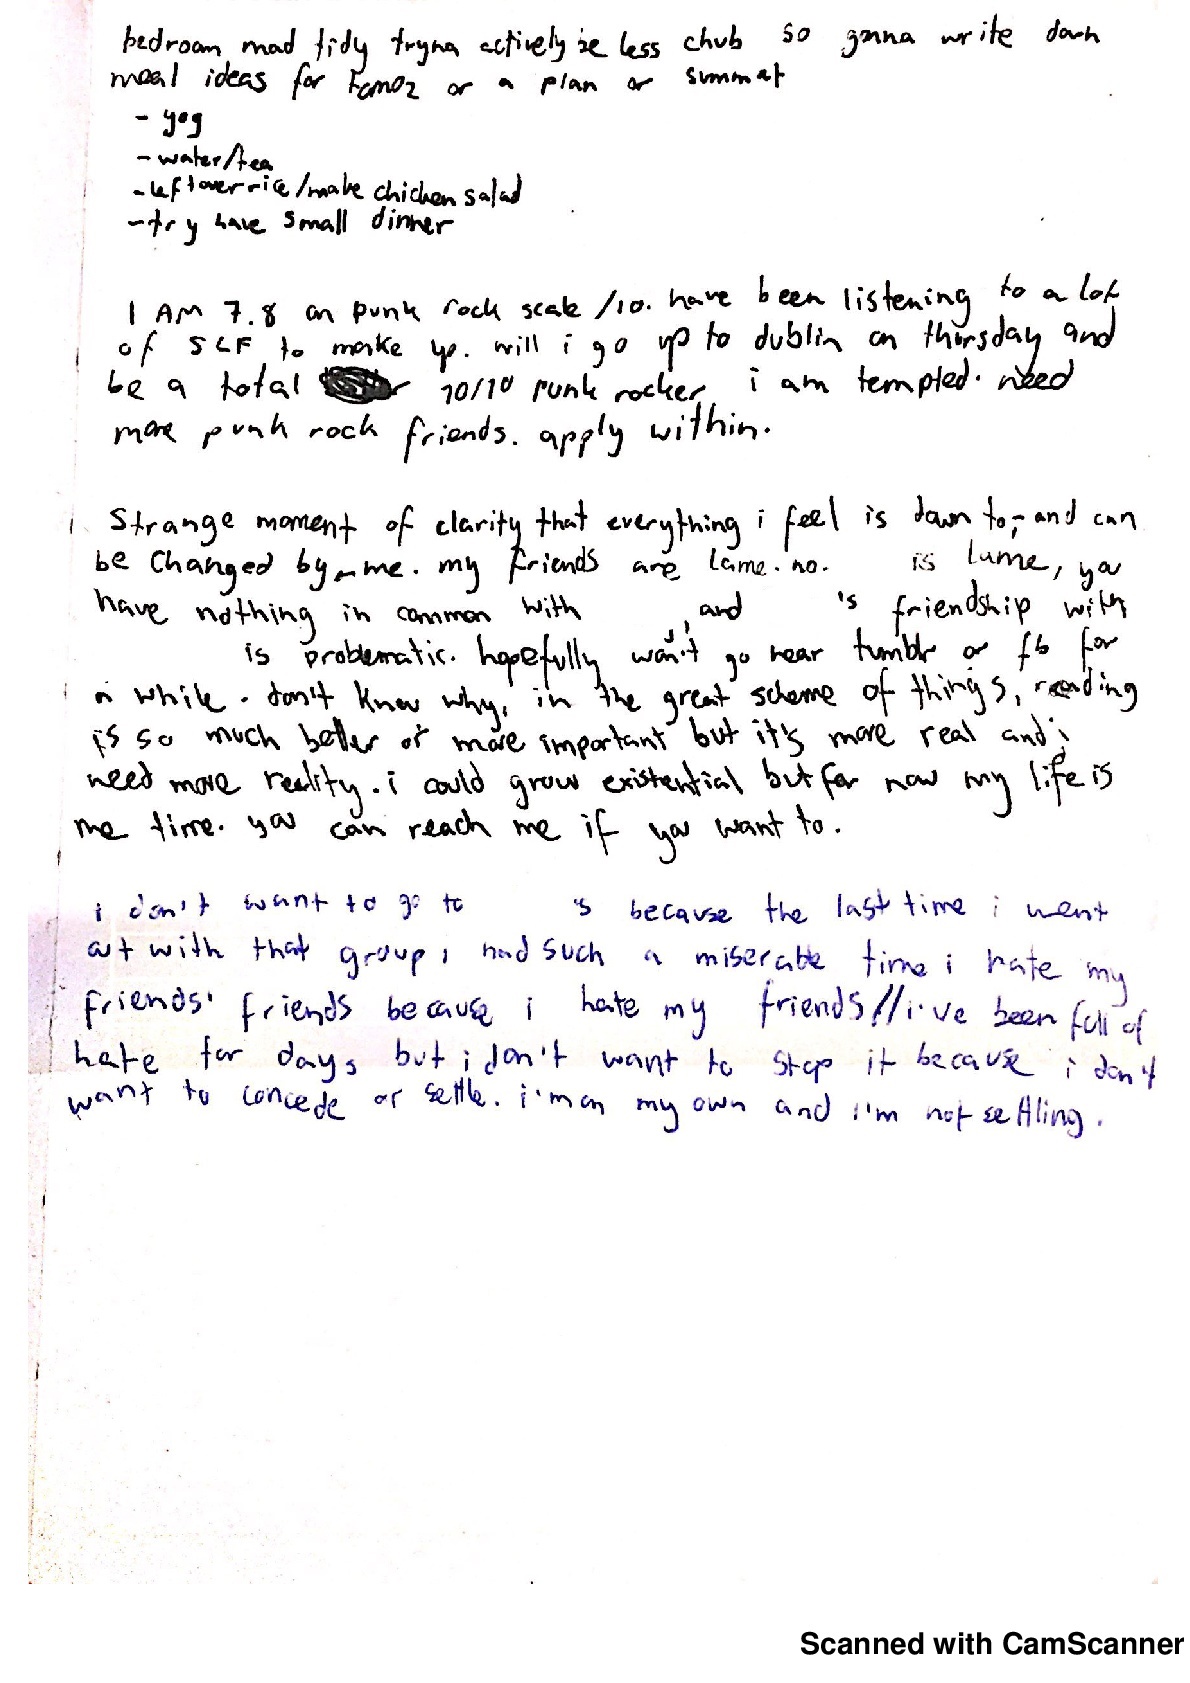 bedroom mad tidy tryna actively be less chub so gonna write down
meal ideas for tomoz or a plan or summat
- yog
- water/tea
- leftover rice/make chicken salad
- try have small dinner
I AM 7.8 on punk rock scale /10. have been listening to a lot
of SLF to make up. will i go up to dublin on thursday and
be a total 10/10 punk rocker i am tempted. need
more punk rock friends. apply within.
Strange moment of clarity that everything i feel is down to, - and can
be changed by - me. my friends are lame. no. is lame, you
have nothing in common with , and 's friendship with
is problematic. hopefully won't go near tumblr or fb for
a while. don't know why, in the great scheme of things, reading
is so much better or more important but it's more real and i
need more reality. i could grow existential but for now my life is
me time. you can reach me if you want to.
i don't want to go to 's because the last time i went
out with that group i had such a miserable time i hate my
friends' friends because i hate my friends//i've been full of
hate for days but i don't want to stop it because i don't
want to concede or settle. i'm on my own and i'm not settling.
Scanned with CamScanner